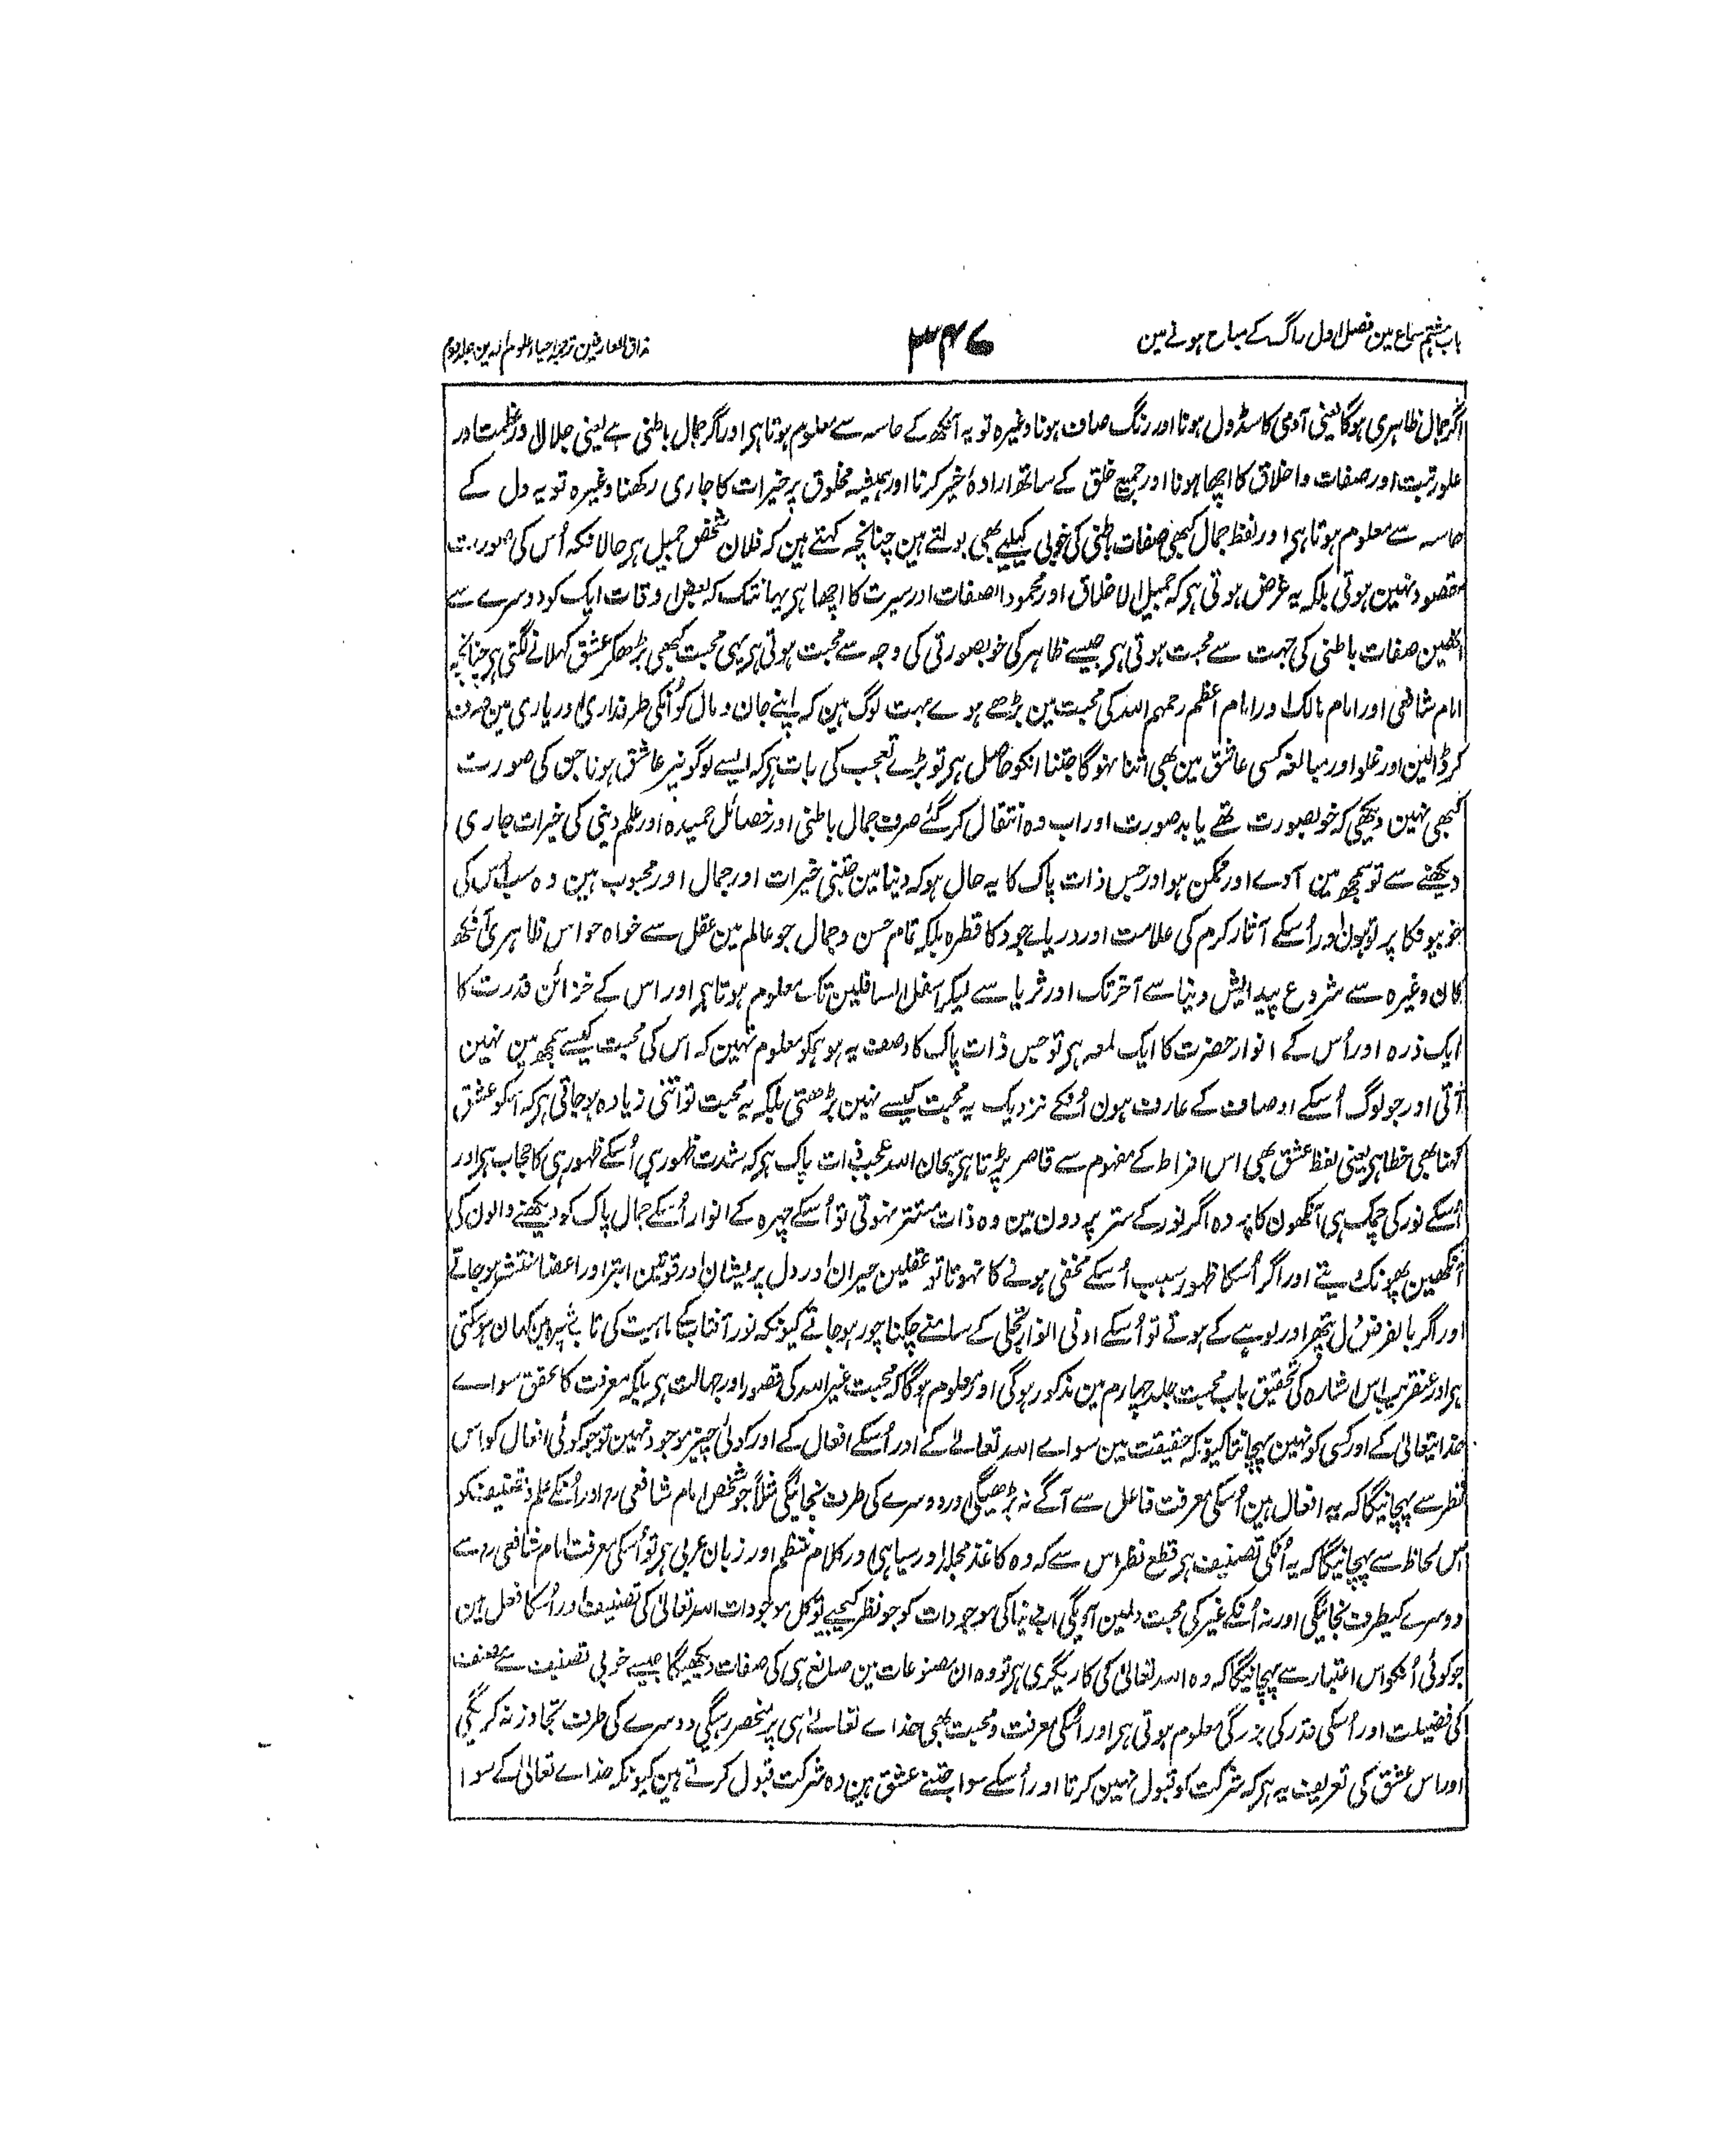 باب ہشتم سماع مین فصل اول راگ کے مباح ہونے مین
۳۴۶
مذاق العارفین ترجمہ احیاء علوم الدین جلد دوم
اگر جمال ظاہری ہوگا یعنی آدمی کا سڈول ہونا اور رنگ صاف ہونا وغیرہ تو یہ آنکھ کے حاسہ سے معلوم ہوتا ہی اور اگر جمال باطنی ہے یعنی جلال اور عظمت اور
علو رتبت اور صفات و اخلاق کا اچھا ہونا اور جمیع خلق کے ساتھ ارادۂ خیر کرنا اور ہمیشہ مخلوق پر خیرات کا جاری رکھنا وغیرہ تو یہ دل کے
حاسہ سے معلوم ہوتا ہی اور لفظ جمال کبھی صفات باطنی کی خوبی کیلیے بھی بولتے ہین چنانچہ کہتے ہین کہ فلان شخص جمیل ہی حالانکہ اُس کی صورت
مقصود نہین ہوتی بلکہ یہ غرض ہوتی ہی کہ جمیل الاخلاق اور محمود الصفات اور سیرت کا اچھا ہی یہانتک کہ بعض اوقات ایک کو دوسرے سے
انھین صفات باطنی کی جہت سے محبت ہوتی ہی جیسے ظاہر کی خوبصورتی کی وجہ سے محبت ہوتی ہی یہی محبت کبھی بڑھکر عشق کہلانے لگتی ہی چنانچہ
امام شافعی اور امام مالک اور امام اعظم رحمہم اللہ کی محبت مین بڑھے ہوے بہت لوگ ہین کہ اپنے جان و مال کو اُنکی طرفداری اور یاری مین صرف
کر ڈالین اور غلو اور مبالغہ کسی عاشق مین بھی اتنا نہوگا جتنا انکو حاصل ہی تو بڑے تعجب کی بات ہی کہ ایسے لوگونپر عاشق ہونا جن کی صورت
کبھی نہین دیکھی کہ خوبصورت تھے یا بدصورت اور اب وہ انتقال کر گئے صرف جمال باطنی اور خصائل حمیدہ اور علم دینی کی خیرات جاری
دیکھنے سے تو سمجھ مین آوے اور ممکن ہو اور جس ذات پاک کا یہ حال ہو کہ دنیا مین جتنی خیرات اور جمال اور محبوب ہین وہ سب اُس کی
خوبیونکا پرتو ہون اور اُسکے آثار کرم کی علامت اور دریاے جود کا قطرہ بلکہ تمام حسن و جمال جو عالم مین عقل سے خواہ حواس ظاہری آنکھ
کان وغیرہ سے شروع پیدایش دنیا سے آخر تک اور ثریا سے لیکر اسفل السافلین تک معلوم ہوتا ہی اور اس کے خزائن قدرت کا
ایک ذرہ اور اُس کے انوار حضرت کا ایک لمعہ ہی تو جس ذات پاک کا وصف یہ ہو ہمکو معلوم نہین کہ اس کی محبت کیسے سمجھ مین نہین
آتی اور جو لوگ اُسکے اوصاف کے عارف ہون اُنکے نزدیک یہ محبت کیسے نہین بڑھتی بلکہ یہ محبت تو اتنی زیادہ ہوجاتی ہی کہ اسکو عشق
کہنا بھی خطا ہی یعنی لفظ عشق بھی اس افراط کے مفہوم سے قاصر پڑتا ہی سبحان اللہ عجب ذات پاک ہی کہ شدت ظہور ہی اُسکے ظہور ہی کا حجاب ہی اور
اُسکے نور کی چمک ہی آنکھون کا پردہ اگر نور کے ستر پردون مین وہ ذات مستتر نہوتی تو اُسکے چہرہ کے انوار اُسکے جمال پاک کو دیکھنے والون کی
آنکھین پھونک دیتے اور اگر اُسکا ظہور سبب اُسکے مخفی ہونے کا نہوتا تو عقلین حیران اور دل پریشان اور قوتین ابتر اور اعضا منتشر ہوجاتے
اور اگر بالفرض دل پتھر اور لوہے کے ہوتے تو اُسکے ادنی انوار تجلی کے سامنے چکنا چور ہوجاتے کیونکہ نور آفتاب کی ماہیت کی تاب شپرہ مین کہان ہوسکتی
ہی اور عنقریب اس اشارہ کی تحقیق باب محبت جلد چہارم مین مذکور ہوگی اور معلوم ہوگا کہ محبت غیر اللہ کی قصور اور جہالت ہی بلکہ معرفت کا محقق سواے
خداتعالیٰ کے اور کسی کو نہین پہچانتا کیونکہ حقیقت مین سواے اللہ تعالے کے اور اُسکے افعال کے اور کوئی چیز موجود نہین تو جو کوئی افعال کو اس
نظر سے پہچانیگا کہ یہ افعال ہین اُسکی معرفت فاعل سے آگے نہ بڑھیگی اور دوسرے کی طرف نجائیگی مثلاً جو شخص امام شافعی رح اور اُنکے علم و تصنیف کو
اس لحاظ سے پہچانیگا کہ یہ اُنکی تصنیف ہی قطع نظر اس سے کہ وہ کاغذ مجلد اور سیاہی اور کلام منتظم اور زبان عربی ہی تو اُسکی معرفت امام شافعی رح سے
دوسرے کیطرف نجائیگی اور نہ اُنکے غیر کی محبت دلمین آویگی اب دنیا کی موجودات کو جو نظر کیجیے تو کل موجودات اللہ تعالیٰ کی تصنیف اور اُسکا فعل ہین
جو کوئی اُنکو اس اعتبار سے پہچانیگا کہ وہ اللہ تعالیٰ کی کاریگری ہی تو وہ ان مصنوعات مین صانع ہی کی صفات دیکھیگا جیسے خوبی تصنیف سے مصنف
کی فضیلت اور اُسکی قدر کی بزرگی معلوم ہوتی ہی اور اُسکی معرفت و محبت بھی خداے تعالے ہی پر منحصر رہیگی دوسرے کی طرف تجاوز نہ کریگی
اور اس عشق کی تعریف یہ ہی کہ شرکت کو قبول نہین کرتا اور اُسکے سوا جتنے عشق ہین وہ شرکت قبول کرتے ہین کیونکہ خداے تعالیٰ کے سوا